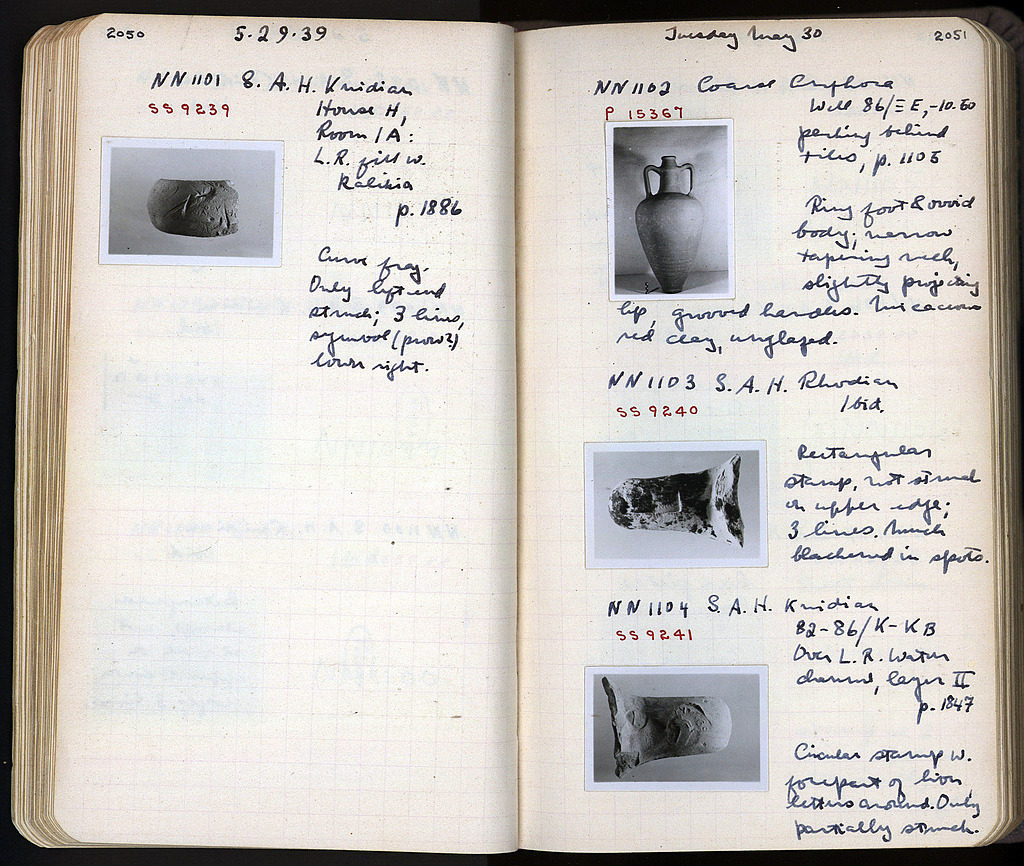 2050
5.29.39
NN1101 S. A. H. Knidian
SS 9239
House H,
Room 1A:
L.R. fill w.
p. 1886
Curve frag.
Only left end
struck; 3 lines,
symbol (prow?)
lower right.
Tuesday May 30
2051
NN1102 Coarse Amphora
P 15367
Well 86/ΞE, -10.60
packing behind
tiles, p. 1103
Ring foot & ovoid
body; narrow
tapering neck,
slightly projecting
lip, grooved handles. Micaceous
red clay, unglazed.
NN1103 S. A. H. Rhodian
SS 9240
Ibid.
Rectangular
stamp, not struck
on upper edge;
3 lines. Much
blackened in spots.
NN1104 S. A. H. Knidian
SS 9241
82-86/K-KB
Over L.R. Water
channel, layer II
p. 1847
Circular stamp w.
forepart of lion,
letters around. Only
partially struck.